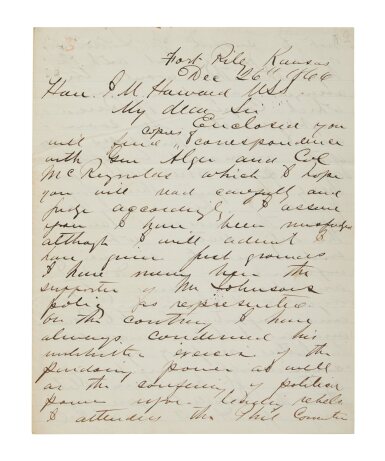 Fort Riley, Kansas
Dec 26th 1866
Hon. J M Howard U.S.S.
My dear Sir
Enclosed you
will find copies of correspondence
with Gen Alger and Col
McReynolds which I hope
you will read carefully and
judge accordingly. I assure
you I have been misjudged
although I will admit I
have given just grounds
I have never been the
supporter of Mr Johnsons
policy as represented
On the contrary I have
always condemned his
exercise of the
pardoning power as well
as the conferring of political
power upon leading rebels
I attended the Phil